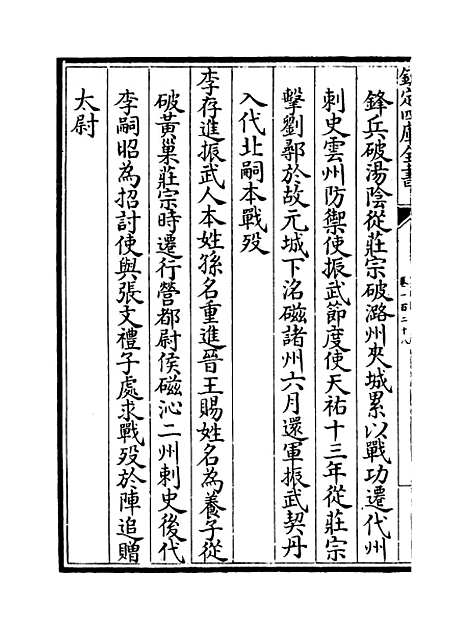 欽定四庫全書
卷一百二十八
鋒兵破湯陰從莊宗破潞州夾城累以戰功遷代州
刺史雲州防禦使振武節度使天祐十三年從莊宗
擊劉鄩於故元城下洺磁諸州六月還軍振武契丹
入代北嗣本戰殁
李存進振武人本姓孫名重進晉王賜姓名為養子從
破黃巢莊宗時遷行營都尉侯磁沁二州刺史後代
李嗣昭為招討使與張文禮子處求戰殁於陣追贈
太尉